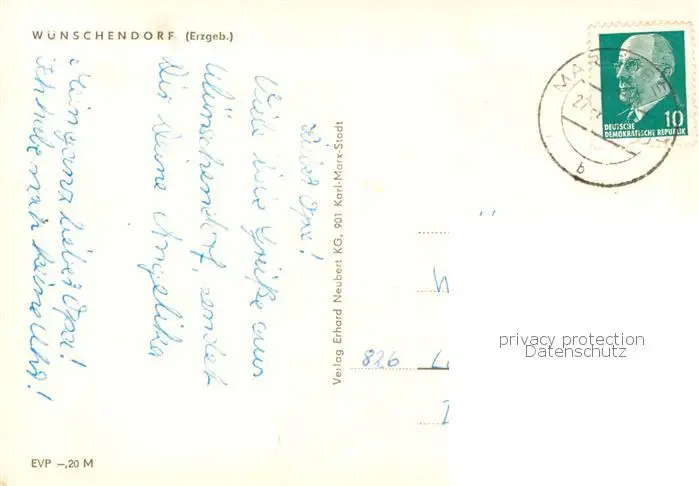 WÜNSCHENDORF (Erzgeb.)
Lieber Opa!
Viele liebe Grüße aus
Wünschendorf, sendet
Dir Deine Angelika
Mein ganz lieber Opa!
Ich habe noch keine Uhr!
Verlag Erhard Neubert KG, 901 Karl-Marx-Stadt
EVP –,20 M
MAR
10
DEUTSCHE
DEMOKRATISCHE REPUBLIK
b
826
privacy protection
Datenschutz